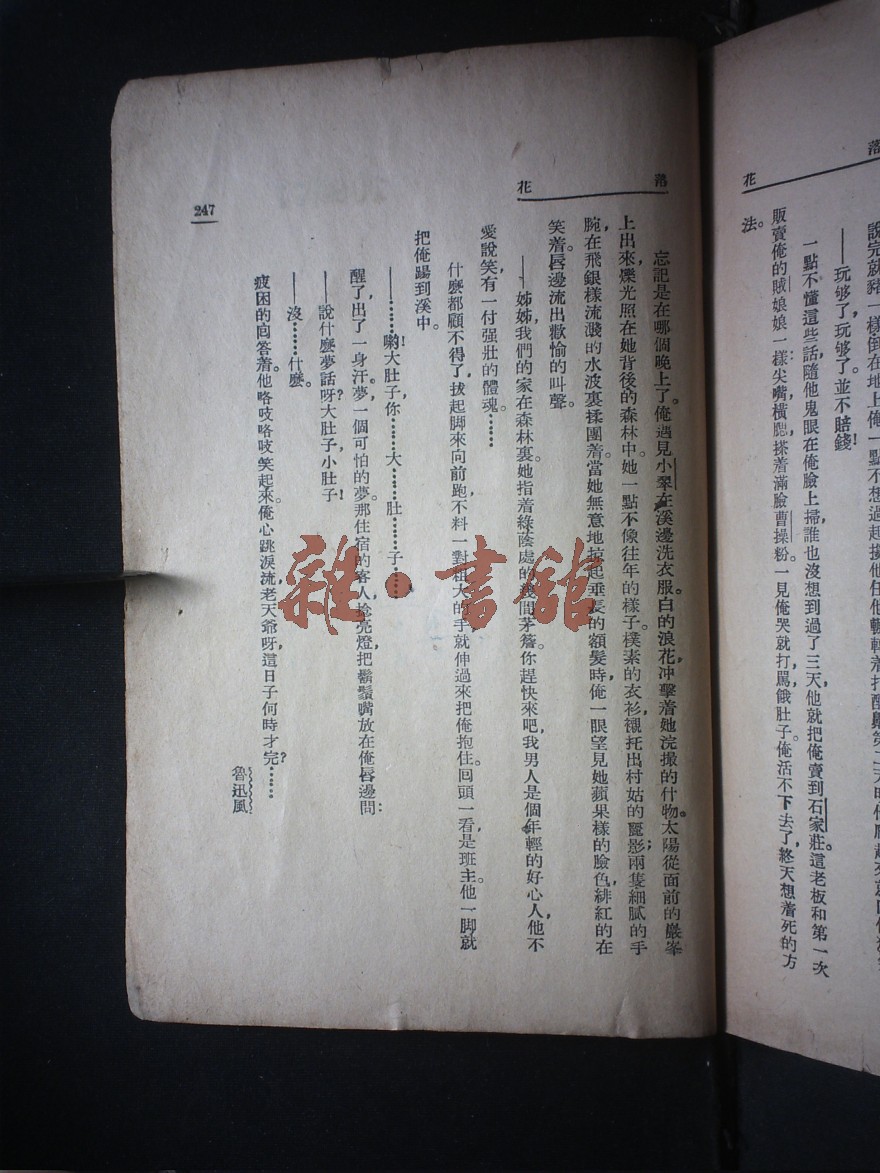 落
花
說完就豬一樣倒在地上俺一點不想過起
——玩够了玩够了。並不賠錢!
一點不懂這些話,隨他鬼眼在俺臉上掃,誰也沒想到過了三天他就把俺賣到石家莊。這老板和第一次
販賣俺的賊娘娘一樣,尖嘴橫腮,搽着滿臉曹操粉。一見俺哭就打罵餓肚子。俺活不下去了,終天想着死的方
法。
落
花
忘記是在哪個晚上了。俺遇見小翠在溪邊洗衣服。白的浪花,冲擊着她浣撮的什物。太陽從面前的巖峯
上出來,爍光照在她背後的森林中。她一點不像往年的樣子。樸素的衣衫襯托出村姑的麗影;兩隻細膩的手
腕在飛銀樣流濺的水波裏揉團着。當她無意地掠起垂長的額髮時,俺一眼望見她蘋果樣的臉色,緋紅的在
笑着。唇邊流出歡愉的叫聲。
——姊姊,我們的家在森林裏。她指着綠蔭處的幾間茅簷。你趕快來吧,我男人是個年輕的好心人,他不
愛說笑,有一付强壯的體魂……
什麼都顧不得了,拔起脚來向前跑,不料一對粗大的手就伸過來把俺抱住。回頭一看,是班主。他一脚就
把俺踢到溪中。
——……喲!大肚子,你……大……肚……子……
醒了,出了一身汗。夢,一個可怕的夢。那住宿的客人,捻亮燈,把鬍鬚嘴放在俺唇邊問:
——說什麼夢話呀?大肚子小肚子!
——沒……什麼。
疲困的回答着。他咯吱咯吱笑起來。俺心跳,淚流,老天爺呀,這日子何時才完?……
魯迅風
247
雜·書館